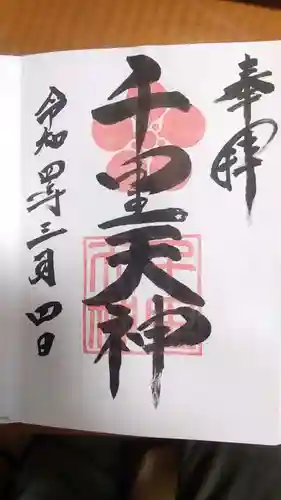 奉拝
千里天神
令和四年三月四日